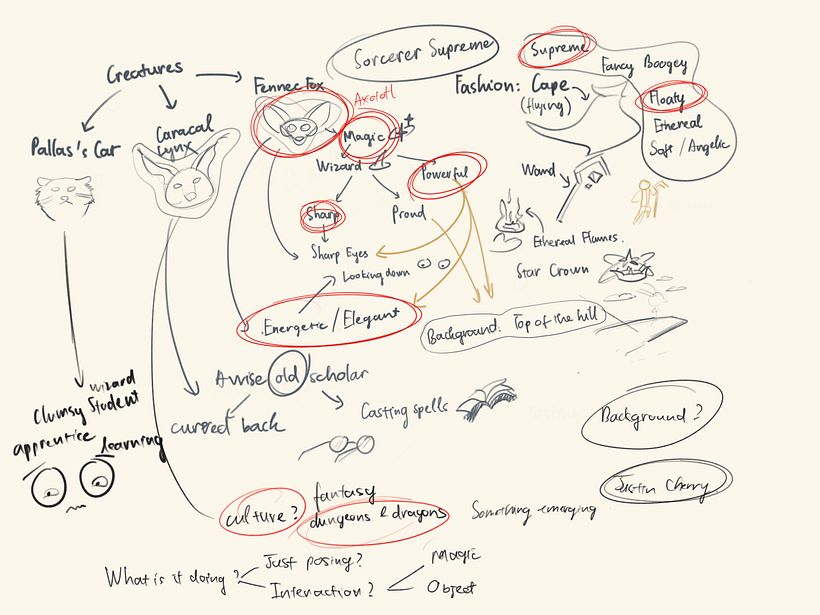 Sorcerer Supreme
Supreme
Fancy Boogey
Creatures
Fennec Fox
Fashion: Cape
(flying)
Floaty
Ethereal
Soft / Angelic
Axolotl
Pallas's Cat
Caracal
Lynx
Magic
Wizard
Powerful
Wand
Sharp
Proud
Ethereal Flames.
Sharp Eyes
Looking down
Star Crown
Energetic / Elegant
Background: Top of the hill
A wise old scholar
Casting spells
curved back
wizard
Clumsy Student
apprentice
learning
Background?
Justin Cherry
culture?
fantasy
dungeons & dragons
Something emerging
What is it doing?
Just posing?
Interaction?
Magic
Object